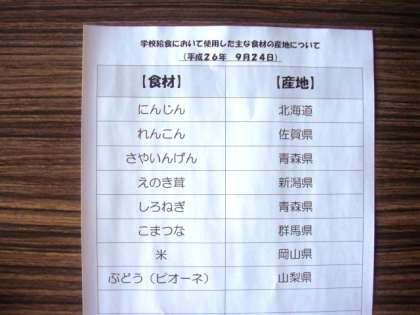 学校給食において使用した主な食材の産地について
（平成２６年　９月２４日）
【食材】 【産地】
にんじん 北海道
れんこん 佐賀県
さやいんげん 青森県
えのき茸 新潟県
しろねぎ 青森県
こまつな 群馬県
米 岡山県
ぶどう（ピオーネ） 山梨県